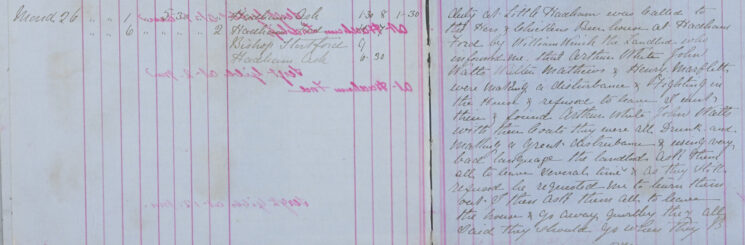 Mond 26 " " 1 Hadham Ash 1 30 8 1-30
" " 6 2 Hadham Ford
Bishop Stortford 9
Hadham Ash 6 30
At Hadham Ford
duty at Little Hadham was called to
the Hen & Chickens Beer house at Hadham
Ford by William the Landlord who
informed me that Arthur White John
Watts Walter Matthews & Henry
were making a disturbance & Fighting in
the House & refused to leave I went
there & found Arthur White John Watts
with their Coats they were all Drunk and
making a Great disturbance & using very
bad language the landlord Ask them
all to leave several times & as they still
refused he requested me to turn them
out I then Ask them all to leave
the house & go away quietly they all
Said they should go when they